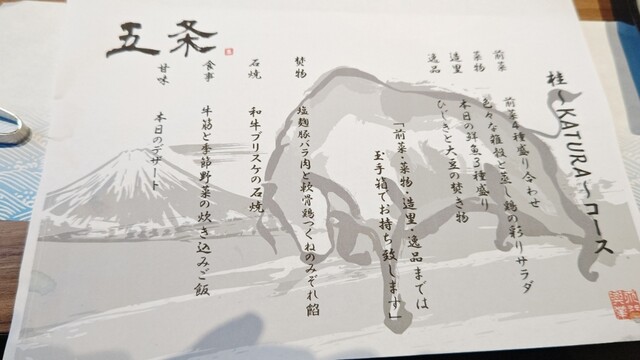 桂～KATURA～コース
前菜 前菜4種盛り合わせ
菜物 色々な雑穀と蒸し鶏の彩りサラダ
造里 本日の鮮魚3種盛り
逸品 ひじきと大豆の焚き物
「前菜・菜物・造里・逸品までは
玉手箱でお持ち致します」
焚物 塩麹豚バラ肉と軟骨鶏つくねのみぞれ餡
石焼 和牛ブリスケの石焼
食事 牛筋と季節野菜の炊き込みご飯
甘味 本日のデザート
五条